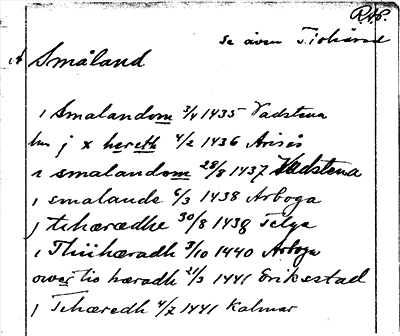 R.A.P.
Se även Tiohärad
Småland
i Smalandom 3/4 1435 Vadstena
j x hereth 4/2 1436
i smalandom 28/8 1437 Vadstena
i smalande 6/3 1438 Arboga
j tehæredhe 30/8 1438 Telga
i Thiihæradh 3/10 1440 Arboga
owar tio hæradh 21/3 1441 Erikestad
j Tehæredh 4/7 1441 Kalmar